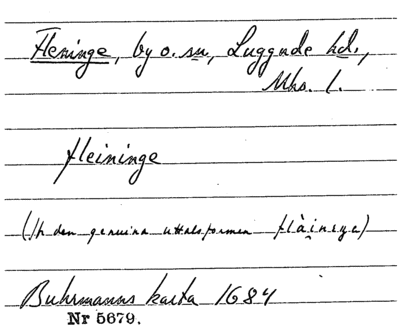 Fleninge, by o. sn, Luggude hd.,
Mhs. l.
fleininge
(Jfr den genuina uttalsformen
Buhrmanns karta 1684
Nr 5679.